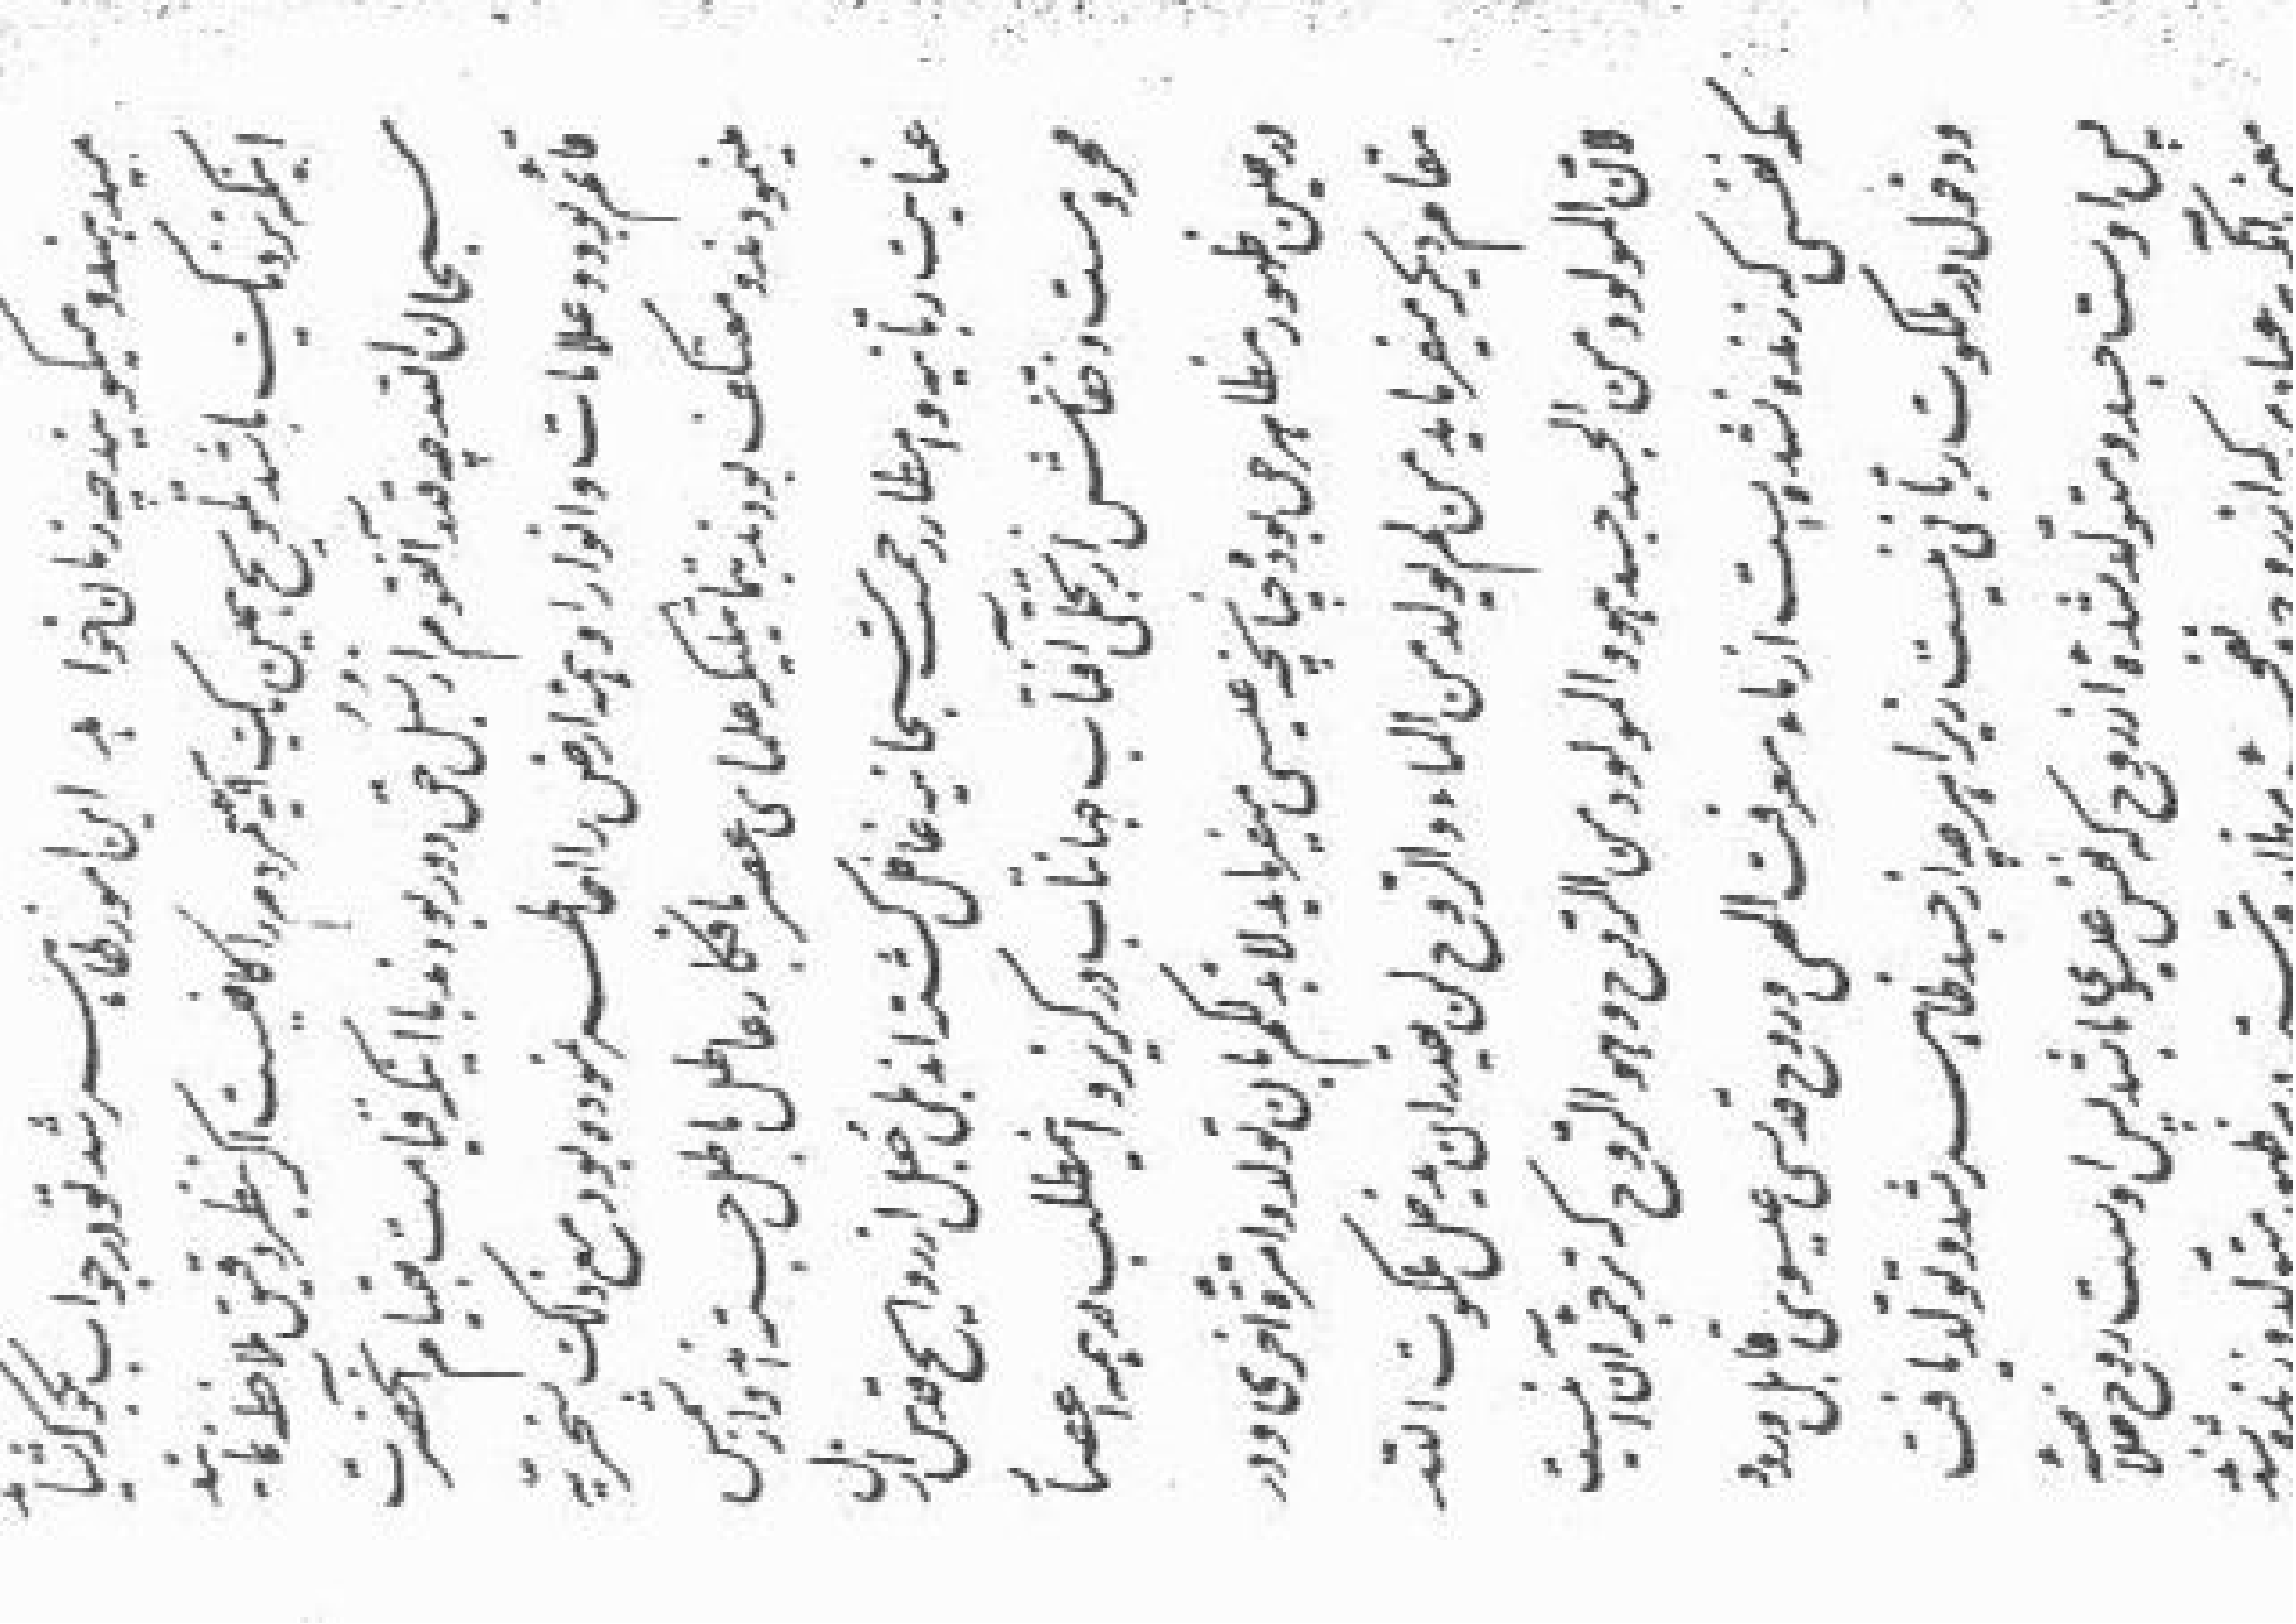 میدهند و میگویند چه زمان خواهد این امور ظاهر شد تو در جواب بگو که شاید
اینکه نزدیک باشد تلویح همین یک آیه مردم را کافیست اگر بنظر دقیق ملاحظه نمایند
سبحان اللّه چه قدر آنقوم از سبل حق دور بودند با اینکه قیامت بقیام آنحضرت
قائم بود و علامات و انوار او همه ارض را احاطه نموده بود مع ذلک سخریّه
مینمودند و معتکف بودند بتماثیلیکه علمای عصر بافکار عاطل باطل جسته‌اند و از شمس
عنایت ربّانیه و امطار رحمت سبحانیه غافل گشته‌اند بلی جعل از روایح قدس ازل
محروم است و خفّاش از تجلّی آفتاب جهانتاب در گریز و اینمطلب در همه اعصار
در حین ظهور مظاهر حق بوده چنانچه عیسی میفرماید لابد لکم بان تولدوا مرّة اخری و در
مقام دیگر میفرماید من لم یولد من الماء و الرّوح لن یقدر ان یدخل ملکوت اللّه
لانّ المولود من الجسد جسد هو و المولود من الرّوح هو الرّوح که ترجمه آن اینست
که نفسی که زنده نشده است از ماء معرفت الهی و روح قدسی عیسوی قابل ورود
و دخول در ملکوت ربانی نیست زیرا هر چه از جسد ظاهر شد و تولّد یافت
پس اوست جسد و متولد شده از روح که نفس عیسوی باشد پس اوست روح خلاصه
معنی آنکه هر عبادیکه از روح و نفخه در ظهور متولد و زنده شدند